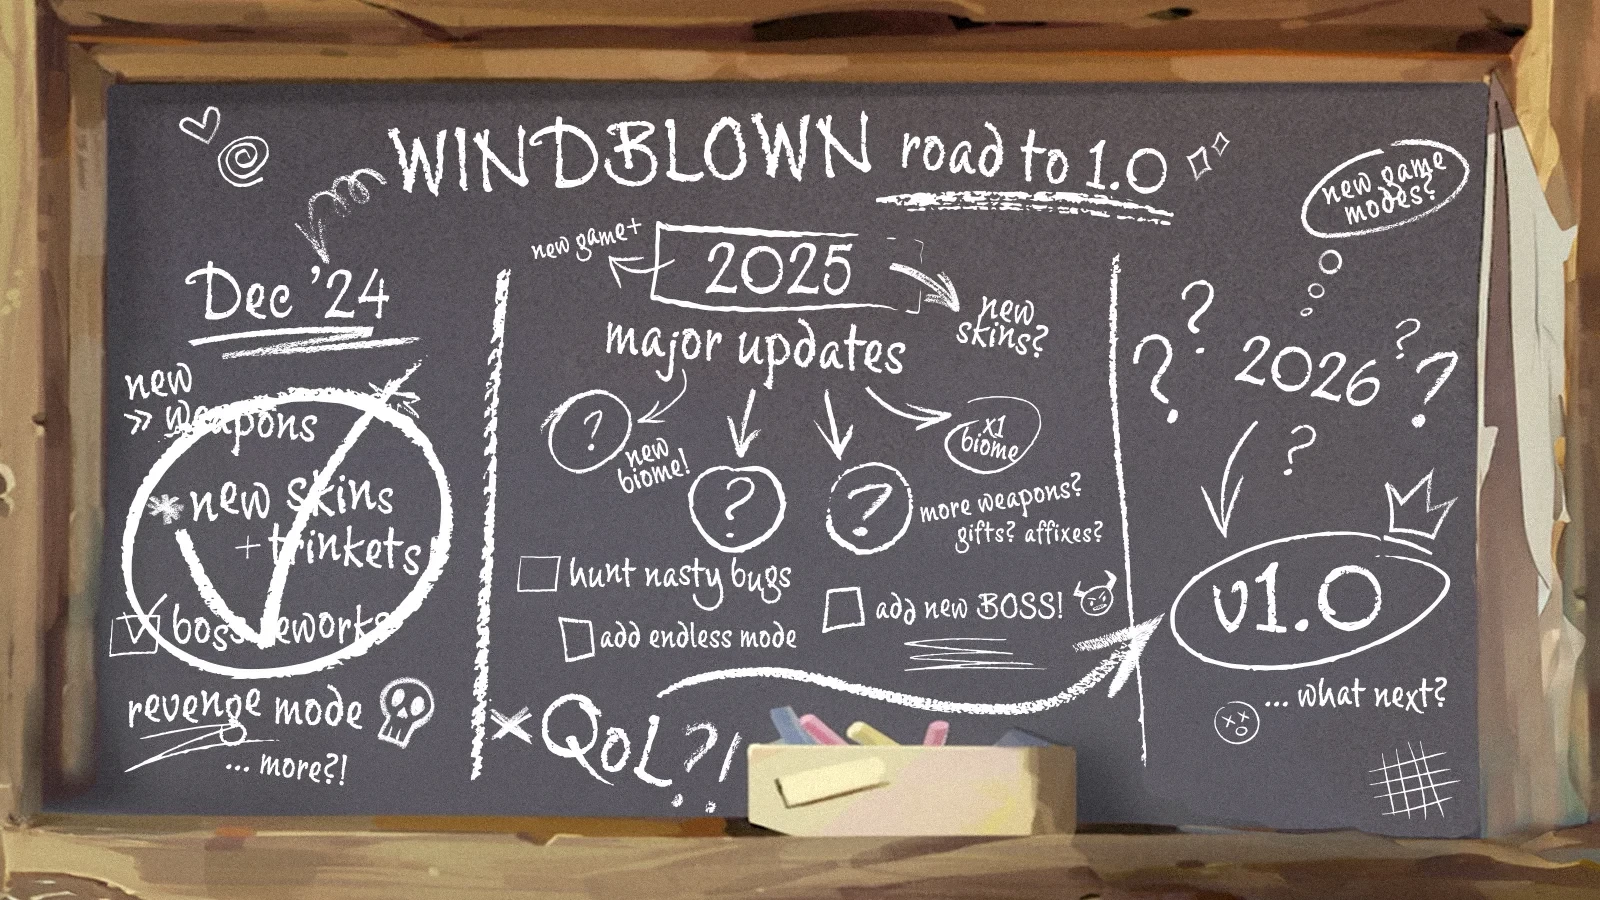 WINDBLOWN road to 1.0
Dec '24
new
» weapons
*new skins
+trinkets
boss reworks
revenge mode
... more?!
new game+
2025
new
skins?
major updates
?
new
biome!
?
?
x1
biome
more weapons?
gifts? affixes?
hunt nasty bugs
add endless mode
add new BOSS!
× QoL?!
new game
modes?
? ? 2026 ? ?
?
v1.0
... what next?